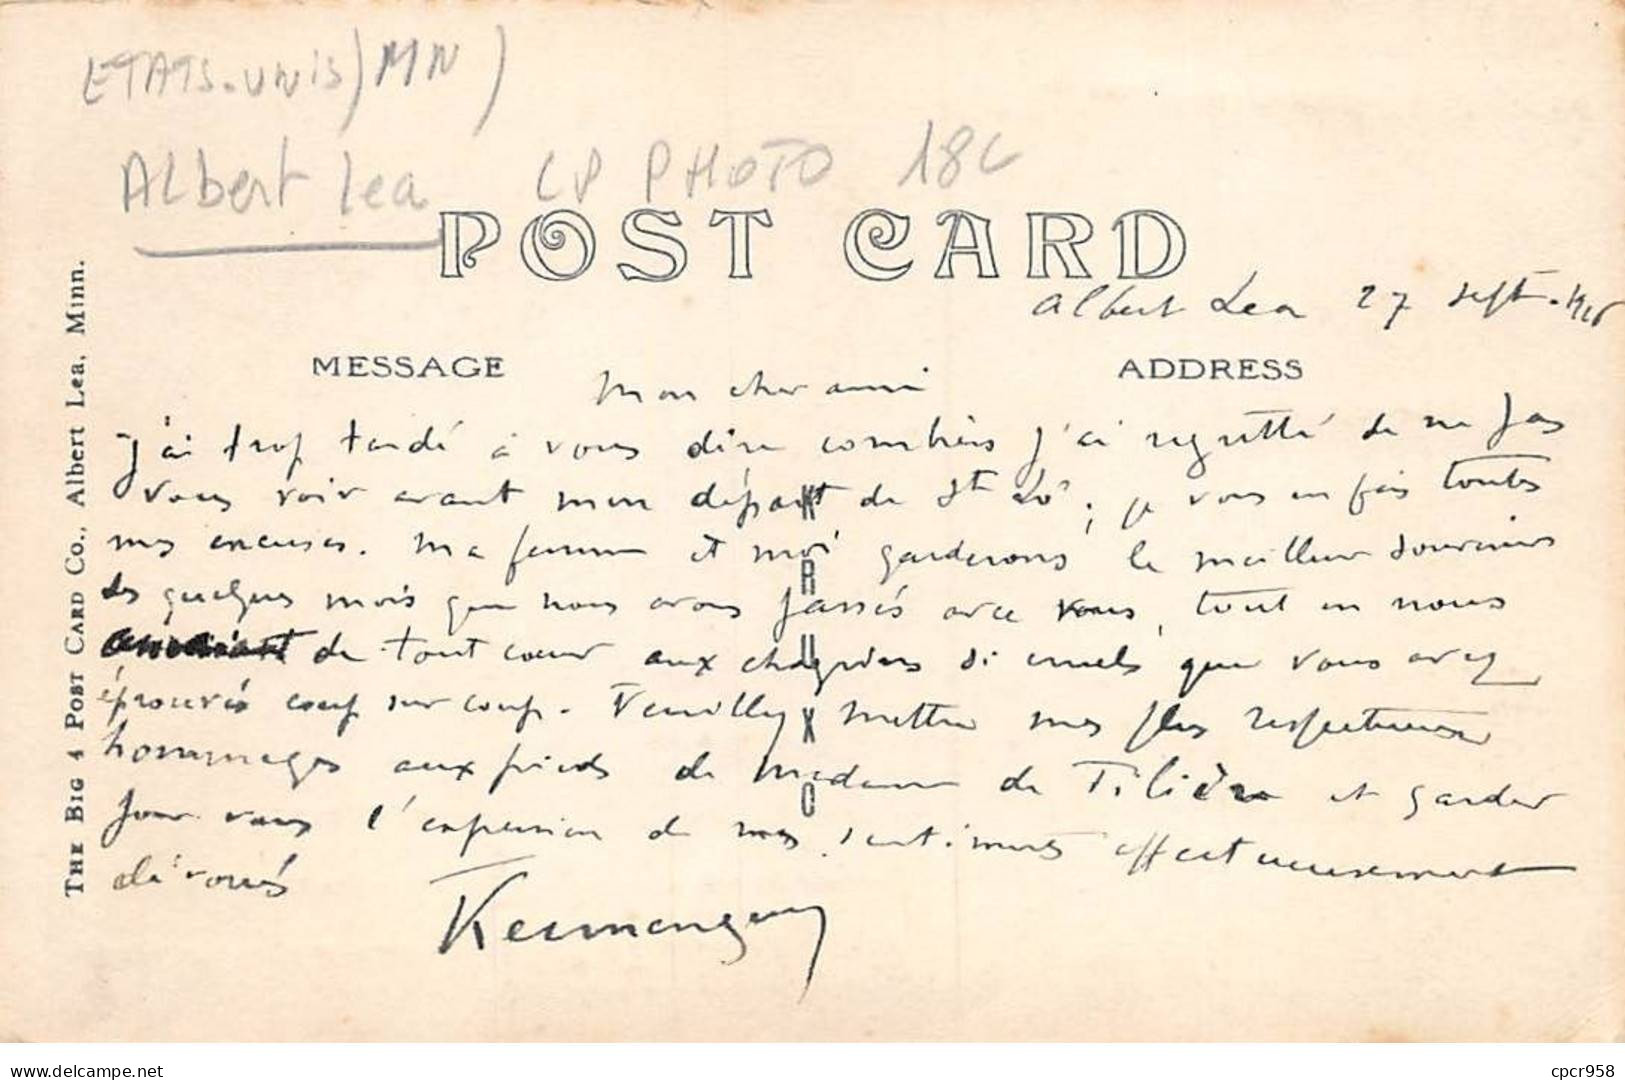 ETATS-UNIS) MN)
Albert Lea CP PHOTO 18€
POST CARD
Albert Lea 27 sept. 1916
MESSAGE
ADDRESS
Mon cher ami
j'ai trop tardé à vous dire combien j'ai regretté de ne pas
vous voir avant mon départ de St Lô ; je vous en fais toutes
mes excuses. Ma femme et moi garderons le meilleur souvenir
des quelques mois que nous avons passés avec vous, tout en nous
de tout cœur aux chagrins si cruels que vous avez
éprouvés coup sur coup. Veuillez mettre mes plus respectueux
hommages aux pieds de Madame de Tilière et garder
pour vous l'expression de mes sentiments affectueusement
dévoués
KRUXO
THE BIG 4 POST CARD CO., Albert Lea, Minn.
www.delcampe.net
cpcr958